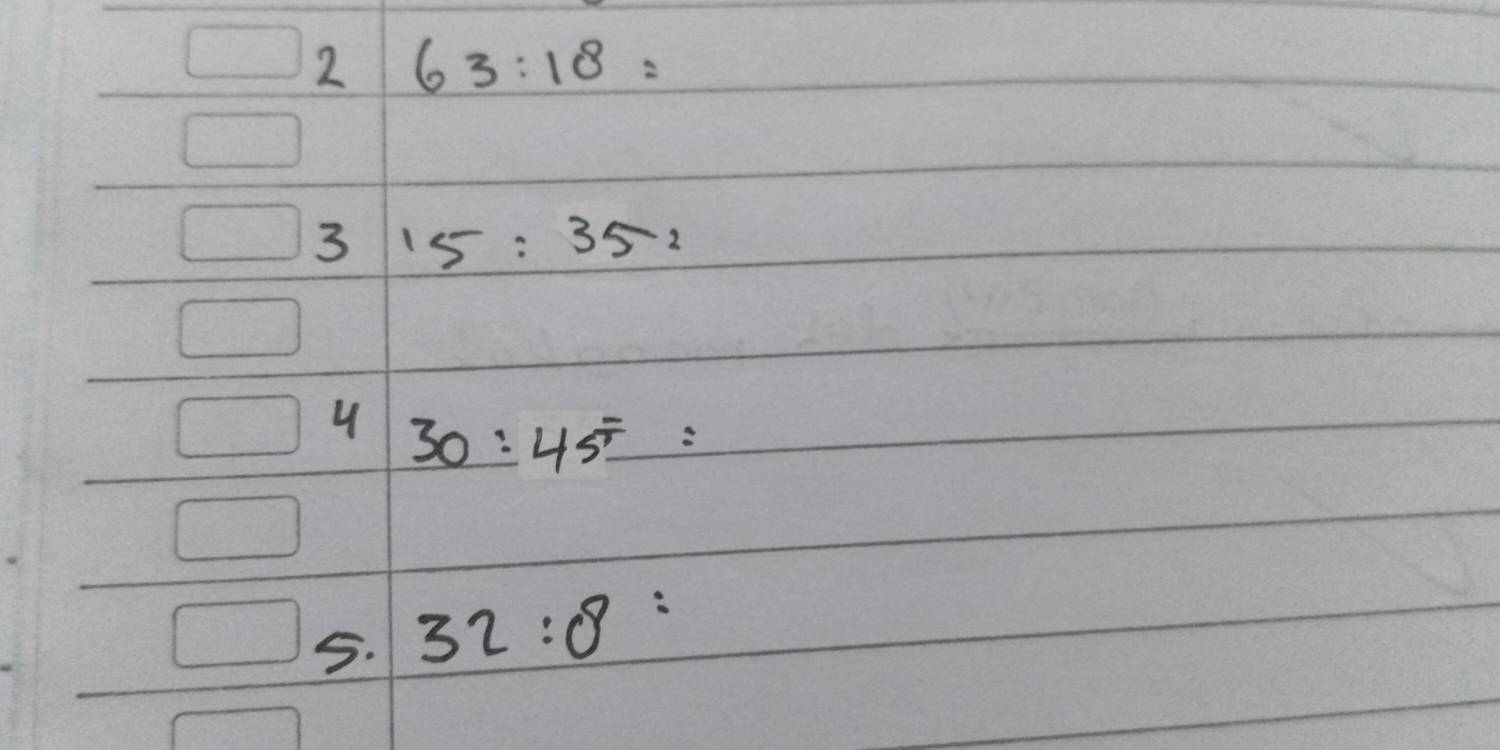 2 63:18 =
3 15 : 35 =
4 30 : 45 =
5. 32 :8 =